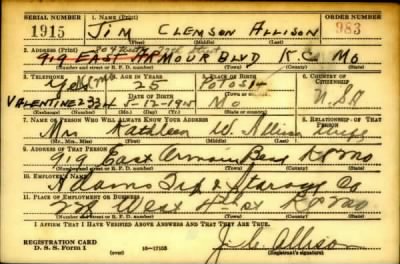 SERIAL NUMBER 1. NAME (Print) ORDER NUMBER
1915 JIM CLEMSON ALLISON 983
(First) (Middle) (Last)
2. ADDRESS (Print)
919 EAST ARMOUR BLVD K C MO
(Number and street or R. F. D. number) (Town) (County) (State)
3. TELEPHONE 4. AGE IN YEARS 5. PLACE OF BIRTH 6. COUNTRY OF CITIZENSHIP
25 POTOSI
DATE OF BIRTH
VALENTINE 2334 5-12-1915 MO U.S.A
(Mo.) (Day) (Yr.) (State or country)
7. NAME OF PERSON WHO WILL ALWAYS KNOW YOUR ADDRESS 8. RELATIONSHIP OF THAT PERSON
Mrs Kathleen W. Allison Wife
(Mr., Mrs., Miss) (First) (Middle) (Last)
9. ADDRESS OF THAT PERSON
919 East Armour Blvd K C Mo
(Number and street or R. F. D. number) (Town) (County) (State)
10. EMPLOYER'S NAME
Adams Storage Co
11. PLACE OF EMPLOYMENT OR BUSINESS
West 4th St K C Mo
(Number and street or R. F. D. number) (Town) (County) (State)
I AFFIRM THAT I HAVE VERIFIED ABOVE ANSWERS AND THAT THEY ARE TRUE.
REGISTRATION CARD
D. S. S. Form 1 (over) 16-17105 J. C. Allison
(Registrant's signature)